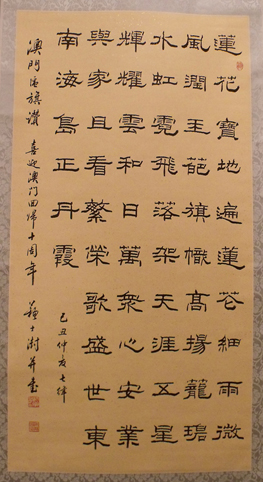 蓮花寶地遍蓮花細雨微
風潤玉葩旗幟高揚籠碧
水虹霓飛落架天涯五星
輝耀雲和日萬衆心安業
與家且看繁榮歌盛世東
南海島正丹霞
己丑仲夏七律
澳門區旗讚 喜迎澳门回歸十周年 蘇士澍并書